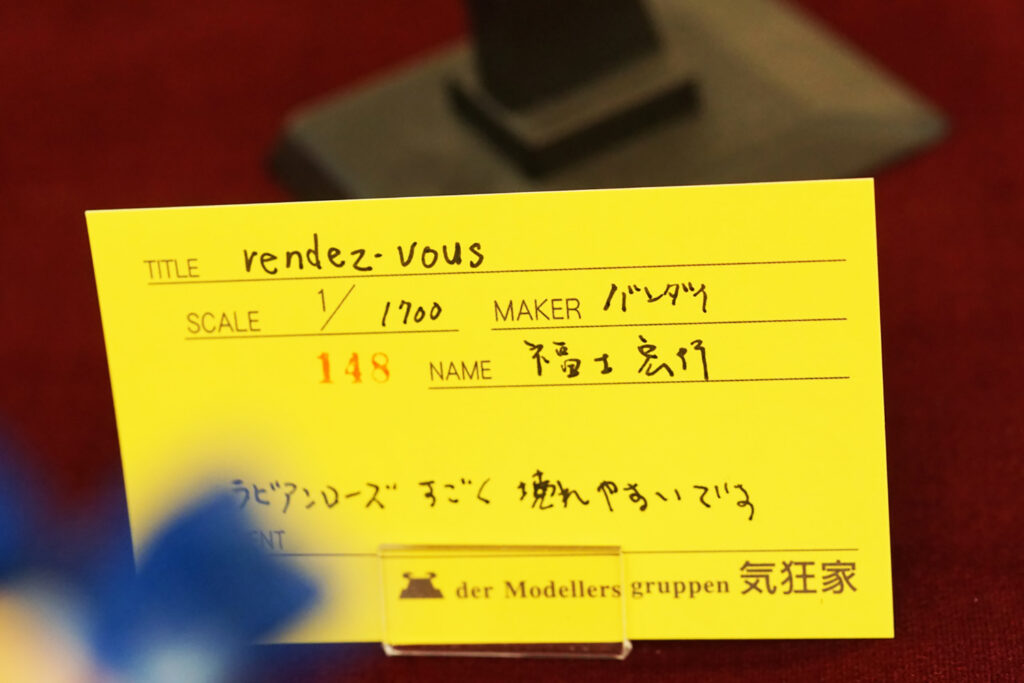 TITLE rendez-vous
SCALE 1/1700 MAKER バンダイ
148 NAME 福士宏行
ラビアンローズ すごく壊れやすいです
ENT
der Modellers gruppen 気狂家